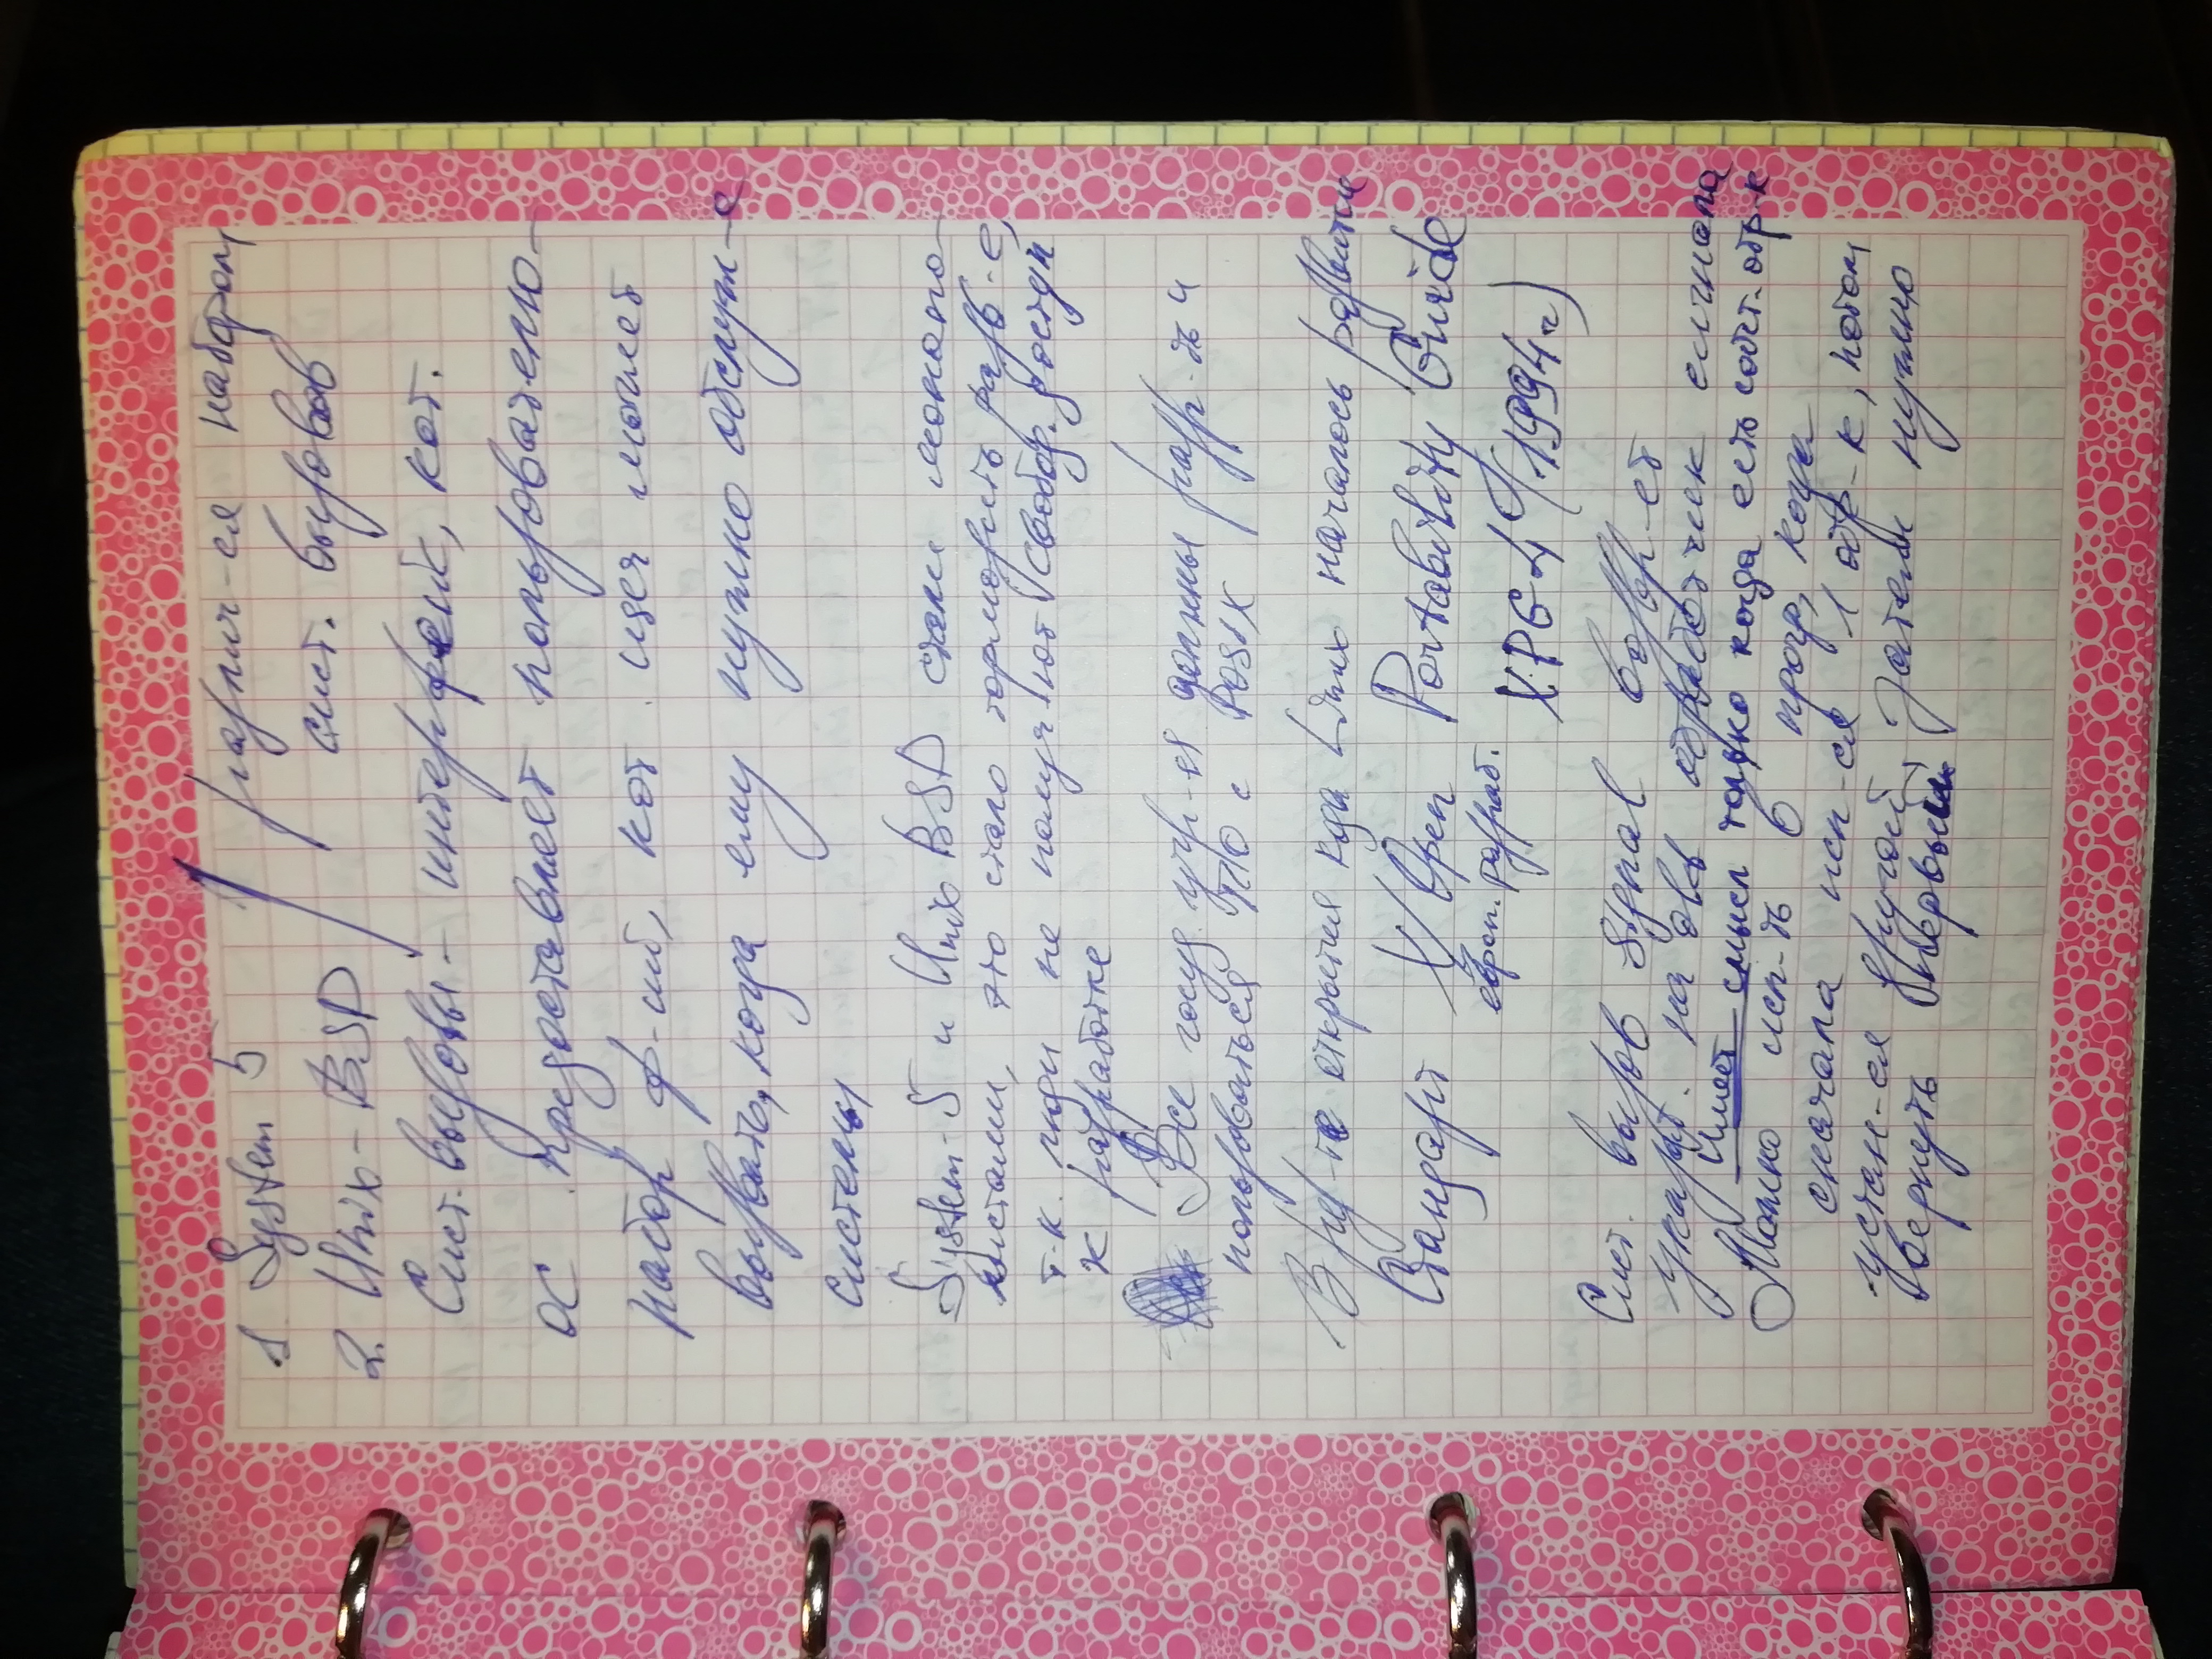 1. System 5 / различ-ся набором
2. Unix - BSD сист. вызовов
Сист. вызовы - интерфейс, кот.
ОС предоставляет пользователю -
набор ф-ий, кот. может
вызвать, когда ему нужно обслуж-е
системы
System-5 и Unix BSD стали монопо-
листами, это стало тормозить разв-е,
т.к. люди не получ ют свобод. доступ
к разработке
Все госуд. учр-я должны разр-ть и
пользоваться ПО с POSIX
В рез-те открытия кода Linux началось развитие
Стандарт X/Open Portability Guide
европ. разраб.
XPG4 (1994г)
Сист. вызов signal возвр-ет
указат. на обработчик сигнала
Имеет смысл только когда есть собст. обр-к
Можно исп-ть в прогр, когда
сначала исп-ся 1 обр-к, потом
устан-ся другой, затем нужно
вернуть первый